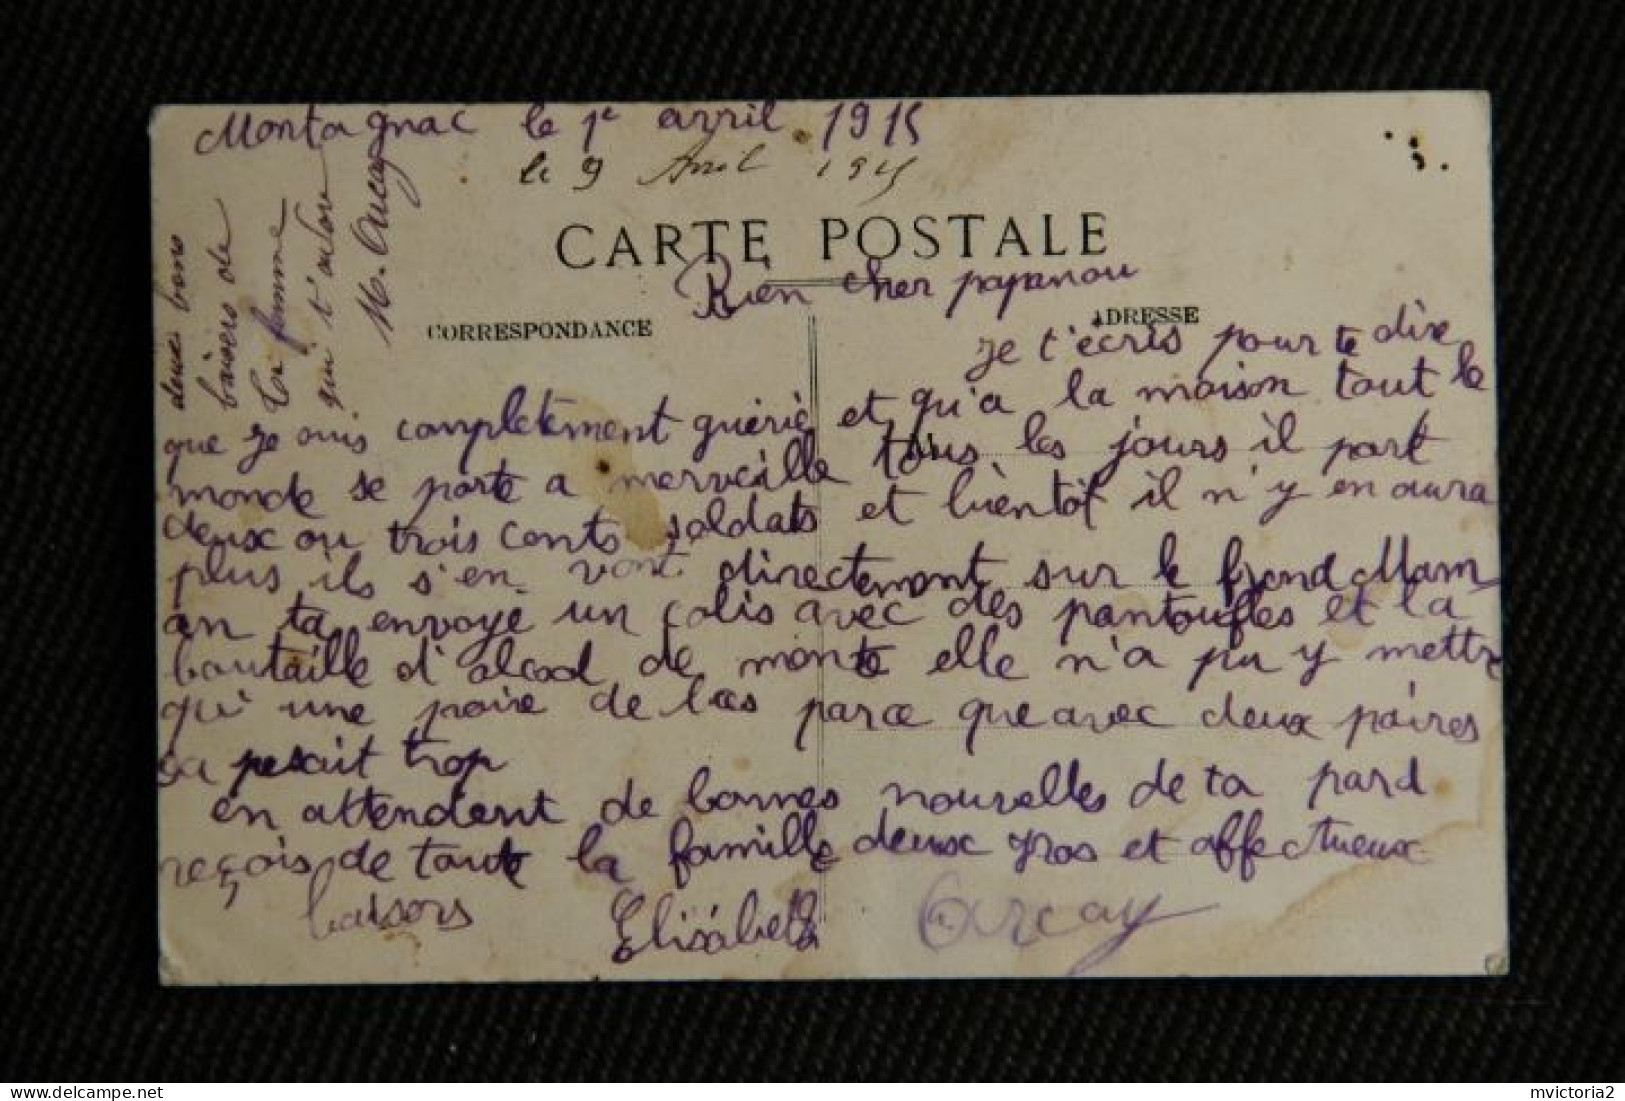 Montagnac le 1e avril 1915
le 9 Avril 1915
deux bons
baisers de
ta femme
qui t'adore
M. Arcay
CARTE POSTALE
Bien cher papanou
CORRESPONDANCE
ADRESSE
je t'écris pour te dire
que je suis complètement guérie et qu'a la maison tout le
monde se porte a merveille tous les jours il part
deux ou trois cents soldats et bientôt il n'y en aura
plus ils s'en vont directement sur le frond Mam
an ta envoyé un colis avec des pantoufles et la
boutaille d'alcool de monte elle n'a pu y mettre
qu'une paire de bas parce que avec deux paires
sa pesait trop
en attendent de bonnes nouvelles de ta pard
reçois de toute la famille deux gros et affectueux
baisers Elisàbeth Arcay
mvictoria2